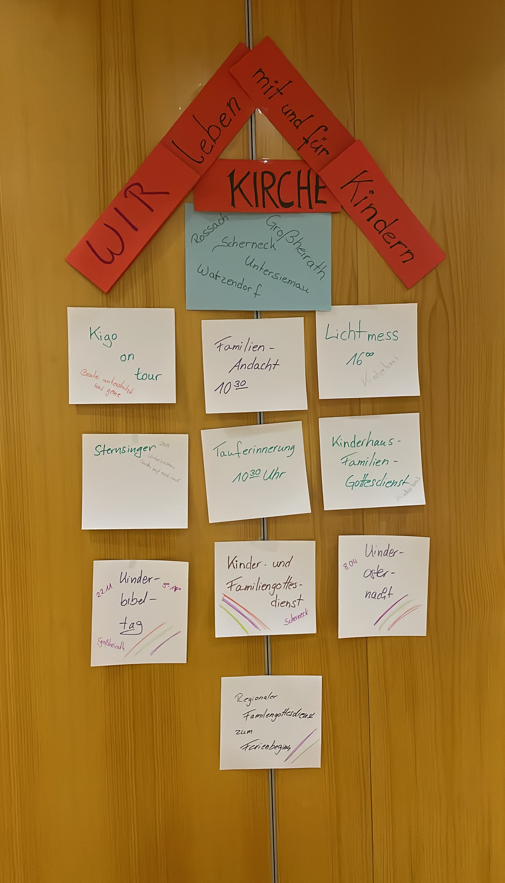 WIR leben
mit und für
Kindern
KIRCHE
Rossach
Großheirath
Scherneck
Untersiemau
Watzendorf
Kigo
on
tour
Familien-
Andacht
10 30
Lichtmess
16 00
Kinderhaus
Sternsinger
Tauferinnerung
10 30 Uhr
Kinderhaus-
Familien-
Gottesdienst
Kinderhaus
22.11
Kinder-
bibel-
tag
Großheirath
Kinder- und
Familiengottes-
dienst
Scherneck
8.04
Kinder-
oster-
nacht
Regionaler
Familiengottesdienst
zum
Ferienbeginn